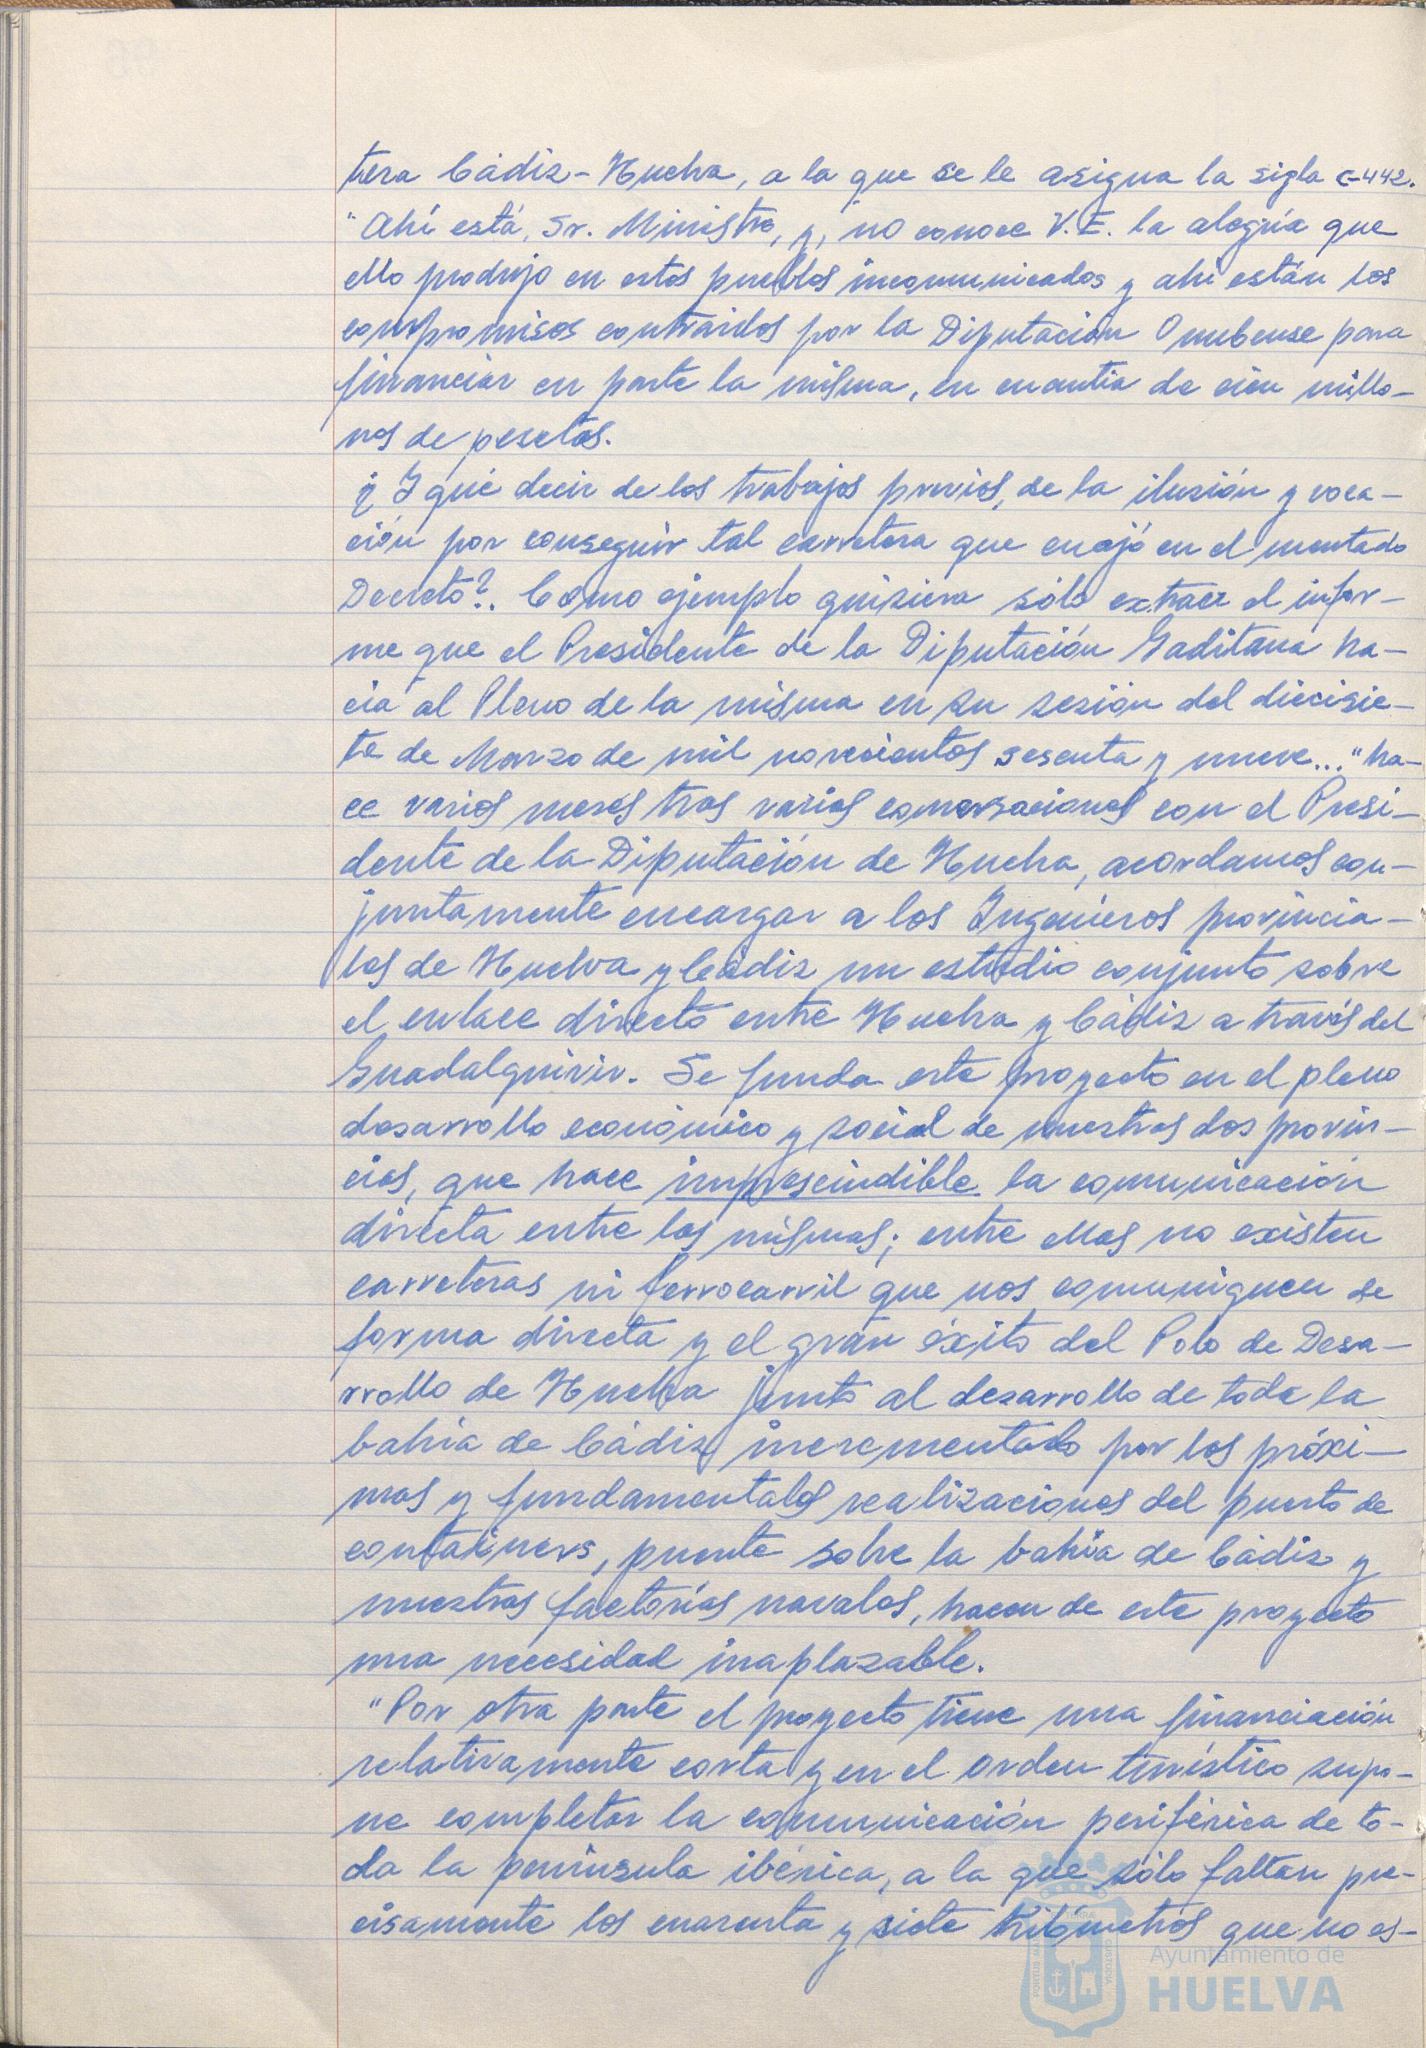 tera Cádiz-Huelva, a la que se le asigna la sigla C-442.
"Ahí está, Sr. Ministro, y, no conoce V.E. la alegría que
ello produjo en estos pueblos incomunicados y ahí están los
compromisos contraidos por la Diputación Onubense para
financiar en parte la misma, en cuantia de cien millo-
nes de pesetas.
¿Y qué decir de los trabajos previos, de la ilusión y voca-
ción por conseguir tal carretera que cuajó en el mentado
Decreto?. Como ejemplo quisiera sólo extraer el infor-
me que el Presidente de la Diputación Gaditana ha-
cia al Pleno de la misma en su sesión del diecisie-
te de Marzo de mil novecientos sesenta y nueve... "ha-
ce varios meses tras varias conversaciones con el Presi-
dente de la Diputación de Huelva, acordamos con-
juntamente encargar a los Ingenieros provincia-
les de Huelva y Cádiz un estudio conjunto sobre
el enlace directo entre Huelva y Cádiz a través del
Guadalquivir. Se funda este proyecto en el pleno
desarrollo económico y social de nuestras dos provin-
cias, que hace imprescindible la comunicación
directa entre las mismas; entre ellas no existen
carreteras ni ferrocarril que nos comuniquen de
forma directa y el gran éxito del Polo de Desa-
rrollo de Huelva junto al desarrollo de toda la
bahía de Cádiz incrementado por las próxi-
mas y fundamentales realizaciones del puerto de
containers, puente sobre la bahía de Cádiz y
nuestras factorías navales, hacen de este proyecto
una necesidad inaplazable.
"Por otra parte el proyecto tiene una financiación
relativamente corta y en el orden turístico supo-
ne completar la comunicación periférica de to-
da la península ibérica, a la que sólo faltan pre-
cisamente los cuarenta y siete kilómetros que no es-
Ayuntamiento de
HUELVA